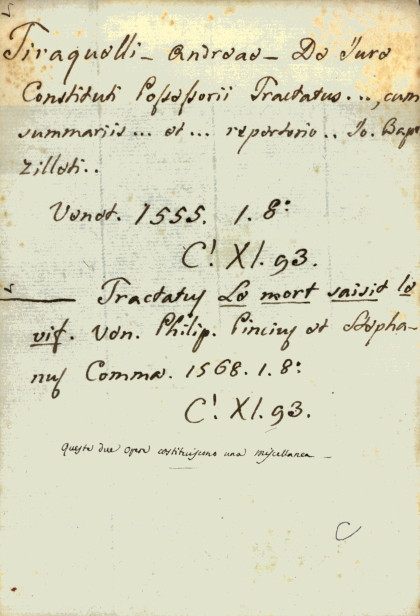 Tiraquelli - Andreae - De Jure
Constituti Possessorii Tractatus..., cum
summariis... et... repertorio.. Jo. Bapt.
Zilleti..
Venet. 1555. 1. 8°
C! XI. 93.
Tractatus Le mort saisit le
vif. Ven. Philip. Pincius et Stepha-
nus Comma. 1568. 1. 8°
C! XI. 93.
Queste due opere costituiscono una miscellanea -
C